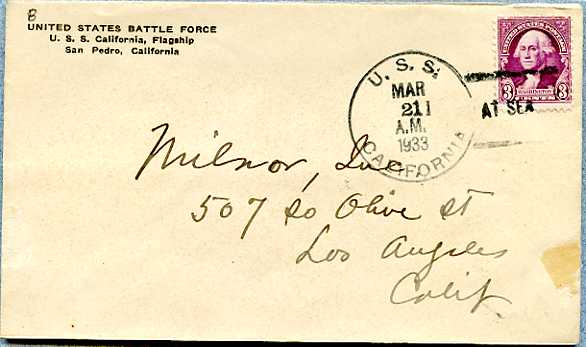 8
UNITED STATES BATTLE FORCE
U. S. S. California, Flagship
San Pedro, California
UNITED STATES POSTAGE
3 WASHINGTON 3
CENTS
U. S. S.
MAR
21
A.M.
1933
CALIFORNIA
AT SEA
Milnor, Inc.
507 So Olive St
Los Angeles
Calif.